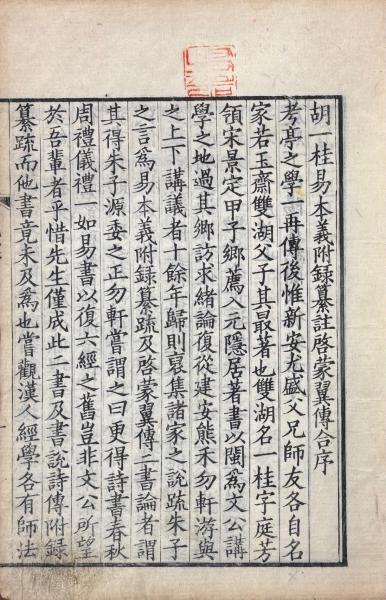 胡一桂易本義附録纂註啓蒙翼傳合序
考亭之學一再傳後惟新安尤盛父兄師友各自名
家若玉齋雙湖父子其最著也雙湖名一桂字庭芳
領宋景定甲子鄉薦入元隱居著書以閩為文公講
學之地過其鄉訪求緒論復從建安熊禾勿軒游與
之上下講議者十餘年歸則裒集諸家之說疏朱子
之言為易本義附録纂疏及啓蒙翼傳二書論者謂
其得朱子源委之正勿軒嘗謂之曰更得詩書春秋
周禮儀禮一如易書以復六經之舊豈非文公所望
於吾輩者乎惜先生僅成此二書及書說詩傳附録
纂疏而他書竟未及為也嘗觀漢人經學各有師法